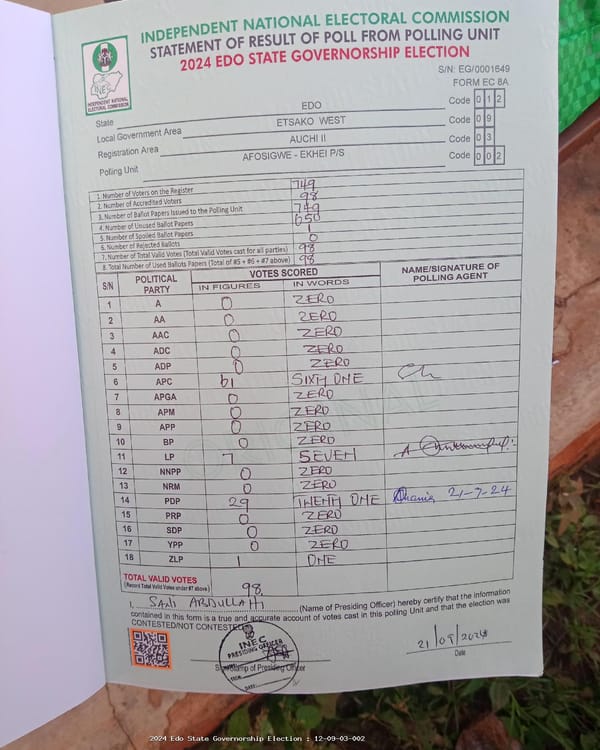 INDEPENDENT NATIONAL ELECTORAL COMMISSION
STATEMENT OF RESULT OF POLL FROM POLLING UNIT
2024 EDO STATE GOVERNORSHIP ELECTION
INEC
INDEPENDENT NATIONAL ELECTORAL COMMISSION
S/N: EG/0001649
FORM EC 8A
State EDO Code 0 1 2
Local Government Area ETSAKO WEST Code 0 9
Registration Area AUCHI II Code 0 3
Polling Unit AFOSIGWE - EKHEI P/S Code 0 0 2
1. Number of Voters on the Register 749
2. Number of Accredited Voters 98
3. Number of Ballot Papers Issued to the Polling Unit 749
4. Number of Unused Ballot Papers 650
5. Number of Spoiled Ballot Papers 1
6. Number of Rejected Ballots 0
7. Number of Total Valid Votes (Total Valid Votes cast for all parties) 98
8. Total Number of Used Ballots Papers (Total of #5 + #6 + #7 above) 98
S/N POLITICAL PARTY VOTES SCORED NAME/SIGNATURE OF POLLING AGENT
IN FIGURES IN WORDS
1 A 0 ZERO
2 AA 0 ZERO
3 AAC 0 ZERO
4 ADC 0 ZERO
5 ADP 0 ZERO
6 APC 61 SIXTY ONE
7 APGA 0 ZERO
8 APM 0 ZERO
9 APP 0 ZERO
10 BP 0 ZERO
11 LP 7 SEVEN
12 NNPP 0 ZERO
13 NRM 0 ZERO
14 PDP 29 TWENTY ONE 21-9-24
15 PRP 0 ZERO
16 SDP 0 ZERO
17 YPP 0 ZERO
18 ZLP 1 ONE
TOTAL VALID VOTES 98
(Record Total Valid Votes under #7 above)
I, SANI ABDULLAHI (Name of Presiding Officer) hereby certify that the information
contained in this form is a true and accurate account of votes cast in this polling Unit and that the election was
CONTESTED/NOT CONTESTED
INEC
PRESIDING OFFICER
Sign/Stamp of Presiding Officer
DATE
21/09/2024
Date
2024 Edo State Governorship Election : 12-09-03-002